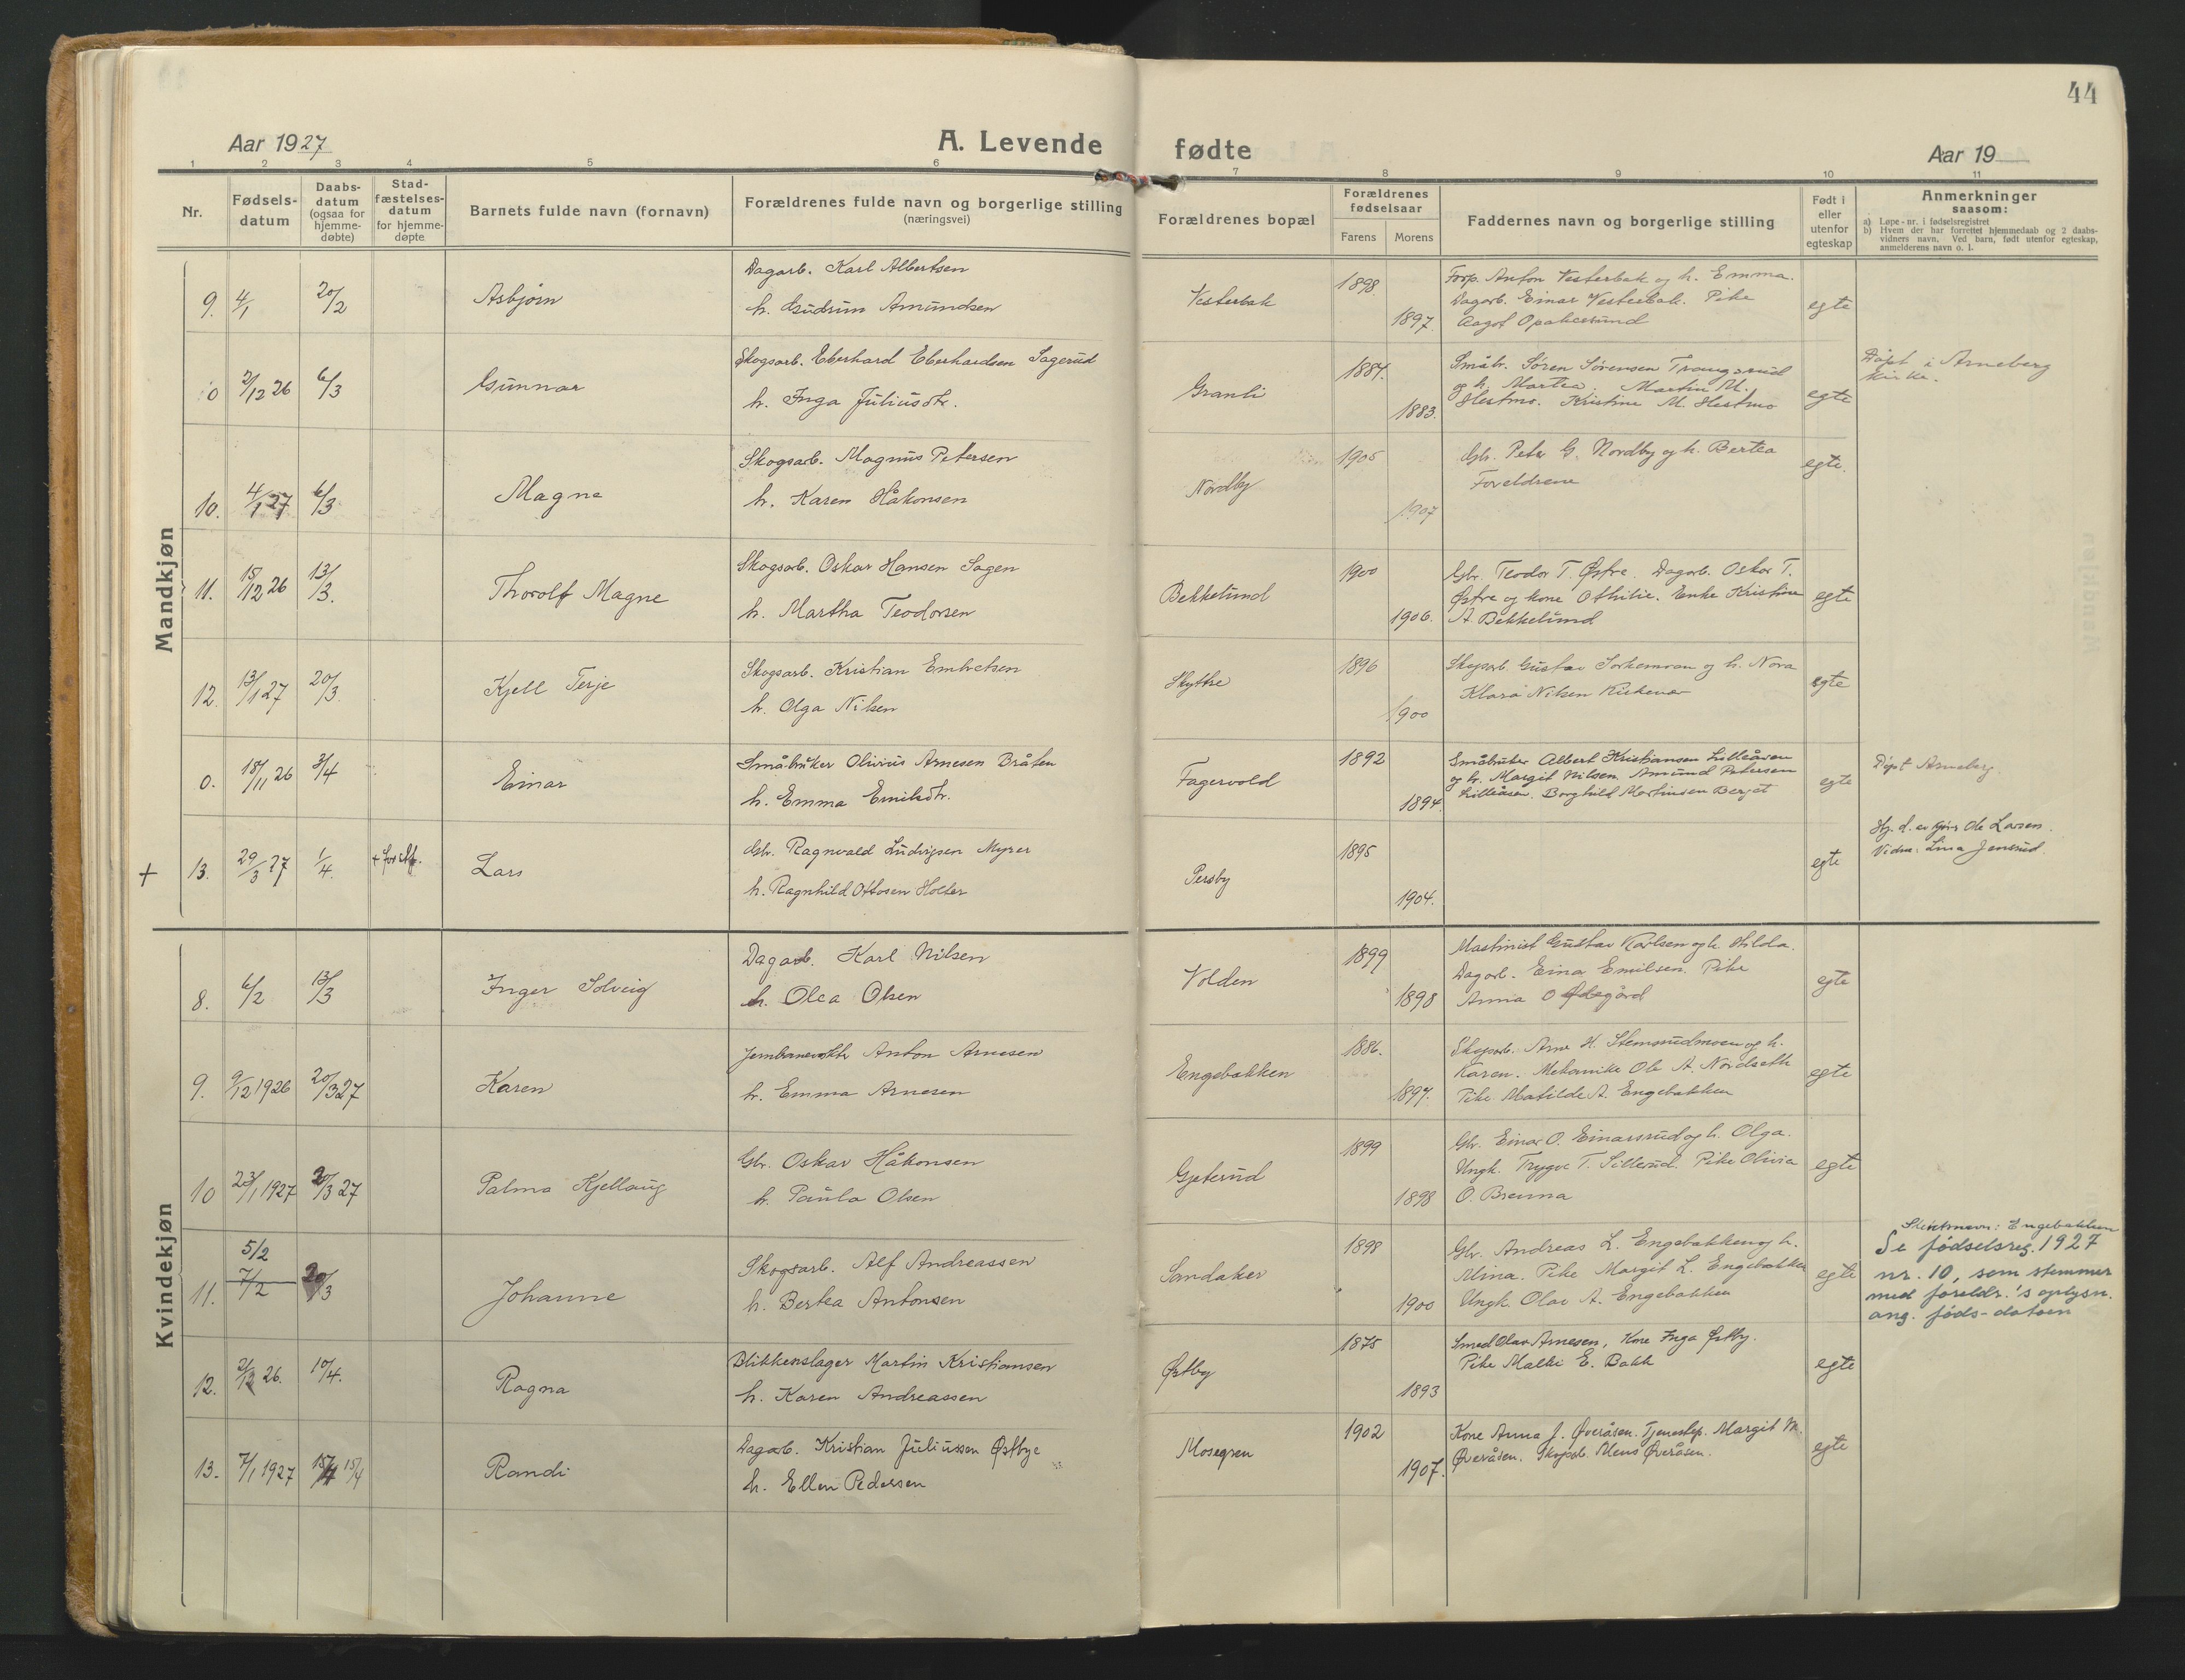 44
Aar 1927
A. Levende fødte
Aar 19
1 2 3 4 5 6 7 8 9 10 11
Nr.
Fødsels-
datum
Daabs-
datum
(ogsaa for
hjemme-
døbte)
Stad-
fæstelses-
datum
for hjemme-
døpte
Barnets fulde navn (fornavn)
Forældrenes fulde navn og borgerlige stilling
(næringsvei)
Forældrenes bopæl
Forældrenes
fødselsaar
Farens Morens
Faddernes navn og borgerlige stilling
Født i
eller
utenfor
egteskap
Anmerkninger
saasom:
a) Løpe-nr. i fødselsregistret
b) Hvem der har forrettet hjemmedaab og 2 daabs-
vidners navn. Ved barn, født utenfor egteskap,
anmelderens navn o. l.
Mandkjøn
9. 4/1 20/2 Asbjørn
Dagarb. Karl Albertsen
h. Gudrun Amundsen
Vesterbak 1898 1897.
Forp. Anton Vesterbak og h. Emma.
Dagarb. Einar Vesterbak. Pike
Aagot
egte
0 2/12 26 6/3 Gunnar
Skogsarb. Eberhard Eberhardsen Sagerud
h. Inga Juliusdtr.
Granli 1884. 1883.
Småbr. Søren Sørensen Trangsrud
og h. Martea. Martin M.
Hestmo. Kristine M. Hestmo
egte
Døpt i Arneberg
kirke.
10. 4/1 27 6/3 Magne
Skogsarb. Magnus Petersen
h. Karen Håkonsen
Nordby 1905 1907
Gbr. Peter G. Nordby og h. Bertea
Foreldrene
egte.
11. 15/12 26 13/3. Thorolf Magne
Skogsarb. Oskar Hansen Sagen
h. Martha Teodorsen
Bekkelund 1900 1906.
Gbr. Teodor T. Østre. Dagarb. Oskar T.
Østre og kone Othilie. Enke Kristine
A. Bekkelund
egte
12. 13/1 27 20/3. Kjell Terje
Skogsarb. Kristian Embretsen
h. Olga Nilsen
Skyttre 1896 1900
Skogsarb. Gustav og h. Nora
Klara Nilsen
egte
0. 18/11 26 3/4 Einar
Småbruker Olivius Arnesen Bråten
h. Emma Emilsdtr.
Fagervold 1892 1894.
Småbruker Albert Kristiansen Lilleåsen
og h. Margit Nilsen. Amund Petersen
Lilleåsen. Borghild Martinsen Berget
egte
Døpt Arneberg.
+ 13. 29/3 27 1/4. Lars
Gbr. Ragnvald Ludvigsen Myrer
h. Ragnhild Ottosen Holter
Persby 1895 1904.
egte
Hj. d. av Ole Larsen.
Vidn. Lina Jensrud.
Kvindekjøn
8. 6/2 13/3 Inger Solveig
Dagarb. Karl Nilsen
h. Olea Olsen
Volden 1899 1898
Maskinist Gustav Karlsen og h. Hilda.
Dagarb. Einar Emilsen. Pike
Anna O Ødegård
egte
9. 9/12 1926 20/3 27 Karen
Anton Arnesen
h. Emma Arnesen
Engebakken 1886. 1897.
Skogsarb. Arne H. Stemsrudmoen og h.
Karen. Mekanike Ole A. Nordseth
Pike Matilde A. Engebakken
egte
10 23/1 1927 20/3 27 Palma Kjellaug
Gbr. Oskar Håkonsen
h. Paula Olsen
Gjeterud 1899 1898
Gbr. Einar O. Einarsrud og h. Olga.
Ungk. Trygve T. Sillerud. Pike Olivia
O. Brenna
egte
11. 5/2 7/2 20/3 Johanne
Skogsarb. Alf Andreassen
h. Bertea Antonsen
Sandaker 1898 1900
Gbr. Andreas L. Engebakken og h.
Mina. Pike Margit L. Engebakken
Ungk. Olav A. Engebakken
egte
Slektsnavn: Engebakken
Se fødselsreg. 1927
nr. 10, som stemmer
med foreldr.'s oplysn.
ang. føds-datoen
12. 2/12 26. 10/4. Ragna
Blikkenslager Martin Kristiansen
h. Karen Andreassen
Østby 1875 1893
Smed Olav Arnesen, Kone Inga Østby.
Pike Malli E. Bakk
egte
13. 7/1 1927 15/4 Randi
Dagarb. Kristian Juliussen Østbye
h. Ellen Pedersen
Mosegren 1902 1907.
Kone Anna J. Øveråsen. Tjenestep. Margit M.
Øveråsen. Skogsarb. Mens Øveråsen.
egte